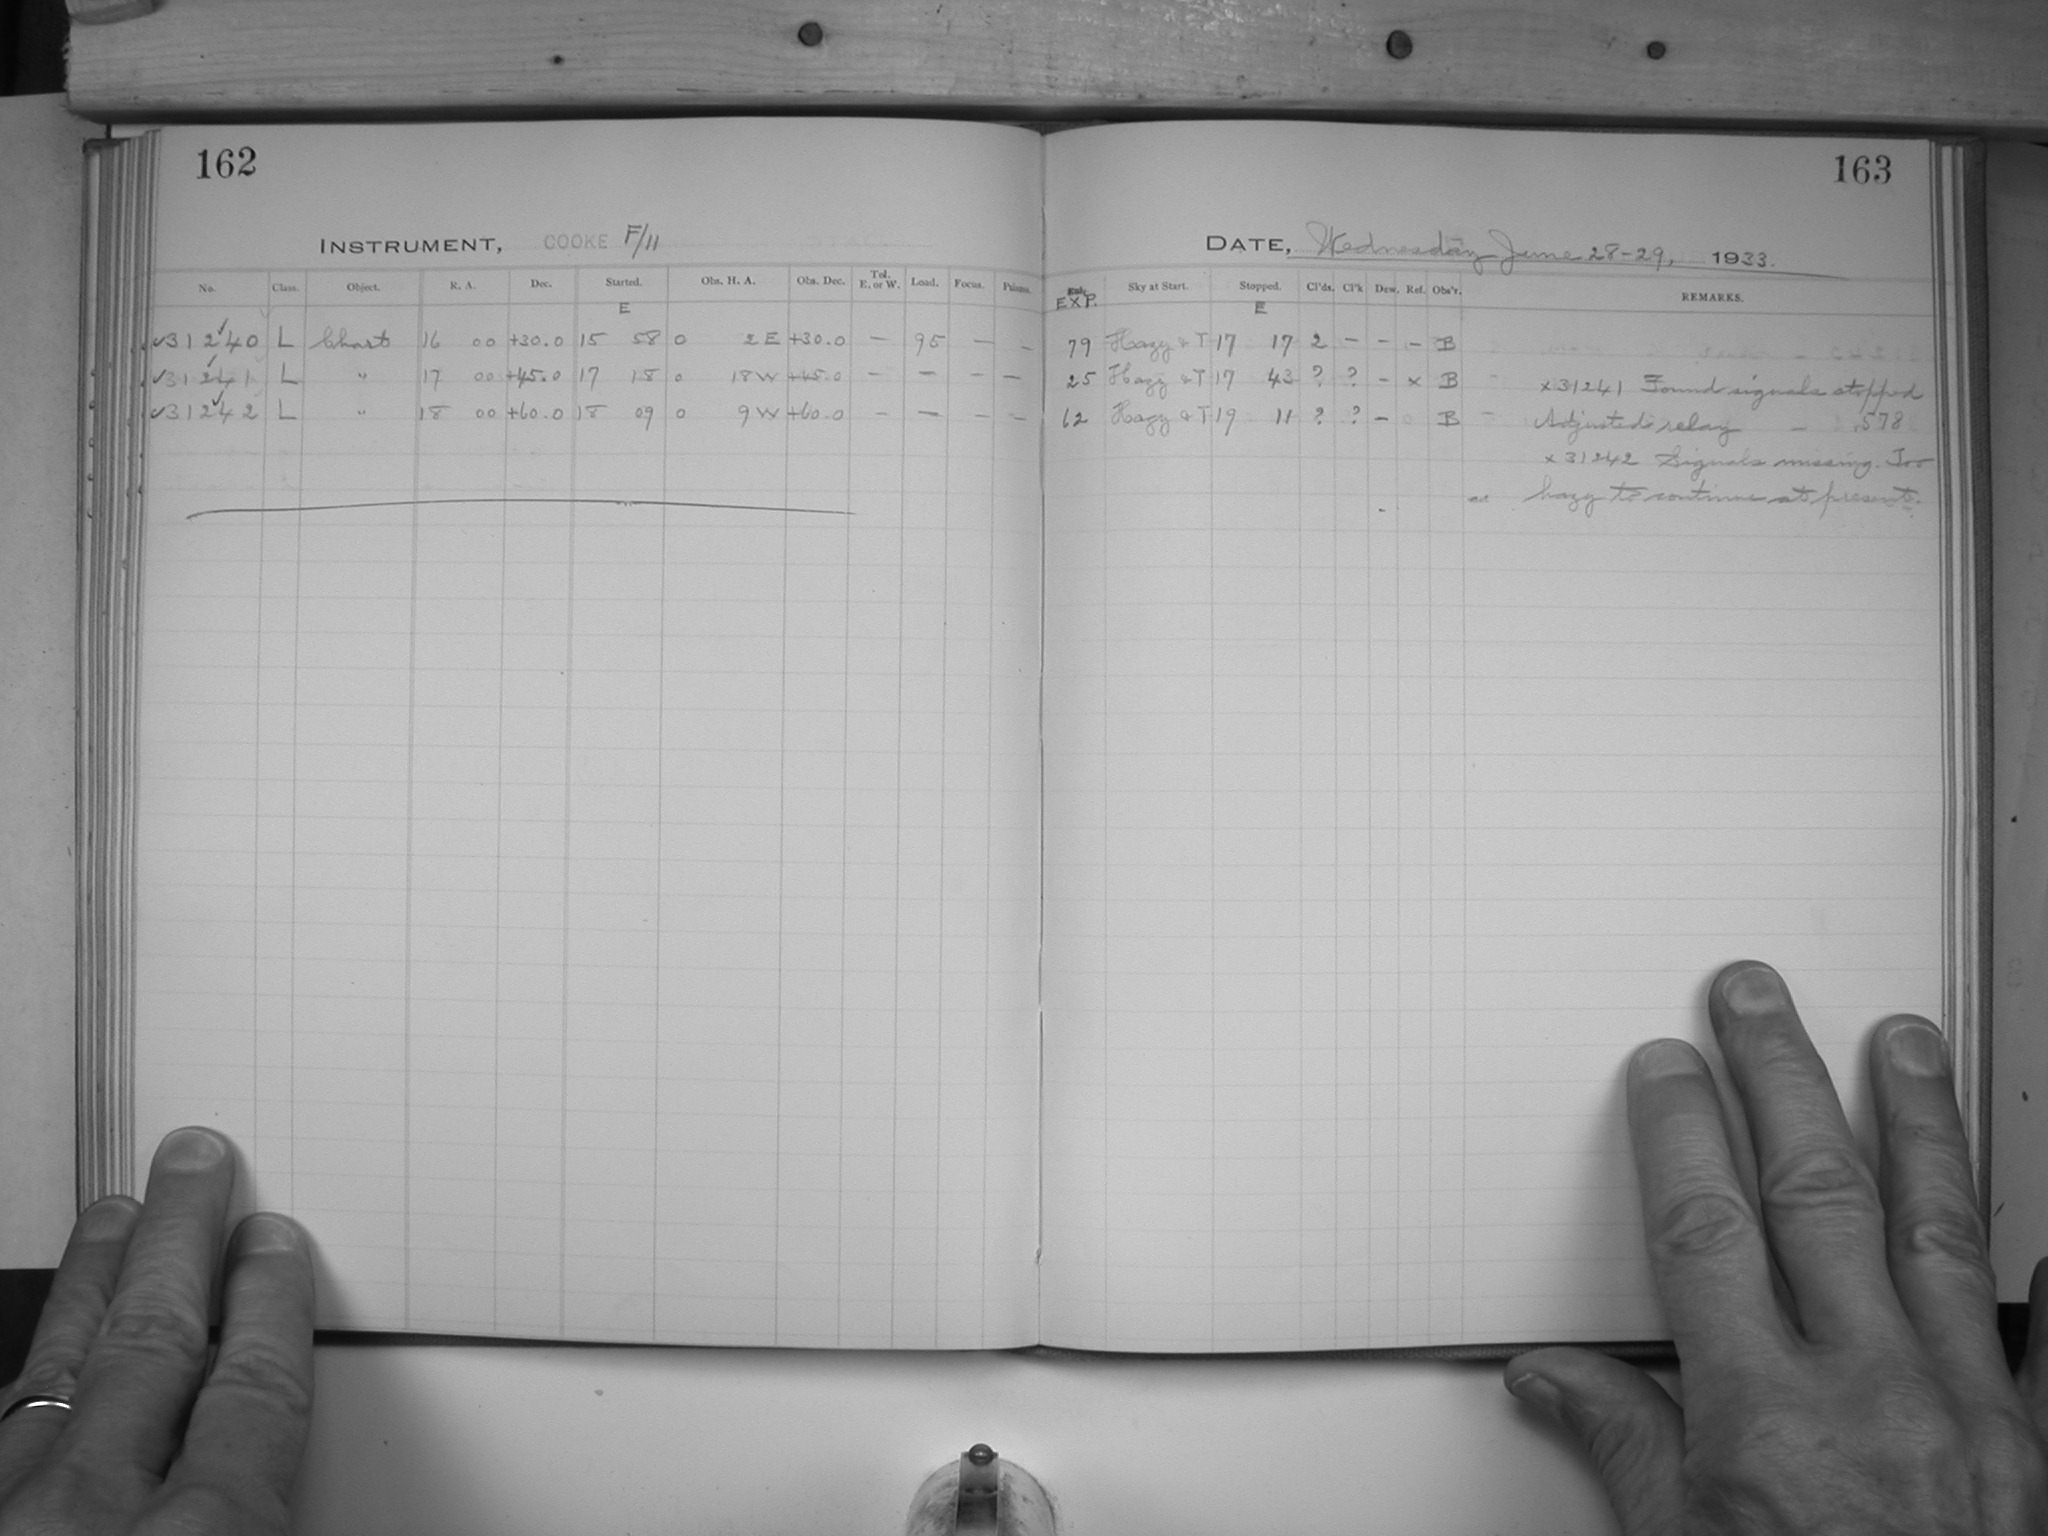 162
INSTRUMENT, COOKE F/11
No. Class. Object. R. A. Dec. Started. Obs. H. A. Obs. Dec. Tel. E. or W. Load. Focus. Prisms.
E
✓31240 L Chart 16 00 +30.0 15 58 0 2 E +30.0 — 95 — —
✓31241 L " 17 00 +45.0 17 18 0 18 W +45.0 — — — —
✓31242 L " 18 00 +60.0 18 09 0 9 W +60.0 — — — —
163
DATE, Wednesday June 28-29, 1933.
EXP. Sky at Start. Stopped. Cl'ds. Cl'k Dew. Ref. Obs'r. REMARKS.
E
79 Hazy & T 17 17 2 — — — B
25 Hazy & T 17 43 ? ? — x B x31241 Found signals stopped
62 Hazy & T 19 11 ? ? — B Adjusted relay — 578
x 31242 Signals missing. Too
hazy to continue at present.